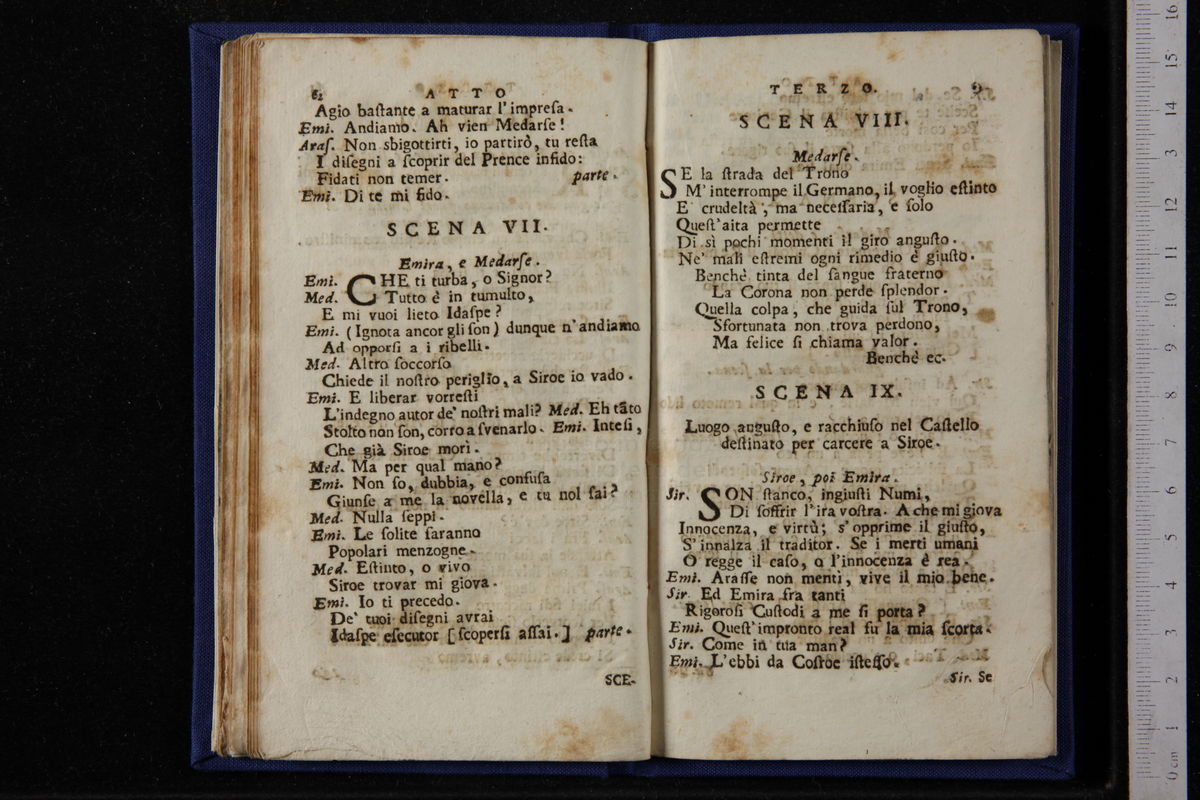 62 ATTO
Agio baſtante a maturar l'impreſa.
Emi. Andiamo. Ah vien Medarſe!
Araſ. Non sbigottirti, io partirò, tu reſta
I diſegni a ſcoprir del Prence infido:
Fidati non temer. parte.
Emi. Di te mi fido.
SCENA VII.
Emira, e Medarſe.
Emi. CHE ti turba, o Signor?
Med. Tutto è in tumulto,
E mi vuoi lieto Idaſpe?
Emi. (Ignota ancor gli ſon) dunque n'andiamo
Ad opporſi a i ribelli.
Med. Altro ſoccorſo
Chiede il noſtro periglio, a Siroe io vado.
Emi. E liberar vorreſti
L'indegno autor de' noſtri mali? Med. Eh tãto
Stolto non ſon, corro a ſvenarlo. Emi. Inteſi,
Che già Siroe morì.
Med. Ma per qual mano?
Emi. Non ſo, dubbia, e confuſa
Giunſe a me la novella, e tu nol ſai?
Med. Nulla ſeppi.
Emi. Le ſolite ſaranno
Popolari menzogne.
Med. Eſtinto, o vivo
Siroe trovar mi giova.
Emi. Io ti precedo.
De' tuoi diſegni avrai
Idaſpe eſecutor [ſcoperſi aſſai.] parte.
SCE-
TERZO.
SCENA VIII.
Medarſe.
SE la ſtrada del Trono
M'interrompe il Germano, il voglio eſtinto
E' crudeltà, ma neceſſaria, e ſolo
Queſt'aita permette
Di sì pochi momenti il giro anguſto.
Ne' mali eſtremi ogni rimedio è giuſto.
Benchè tinta del ſangue fraterno
La Corona non perde ſplendor.
Quella colpa, che guida ſul Trono,
Sfortunata non trova perdono,
Ma felice ſi chiama valor.
Benchè ec.
SCENA IX.
Luogo anguſto, e racchiuſo nel Caſtello
deſtinato per carcere a Siroe.
Siroe, poi Emira.
Sir. SON ſtanco, ingiuſti Numi,
Di ſoffrir l'ira voſtra. A che mi giova
Innocenza, e virtù; s'opprime il giuſto,
S'innalza il traditor. Se i merti umani
O regge il caſo, o l'innocenza è rea.
Emi. Araſſe non mentì, vive il mio bene.
Sir. Ed Emira fra tanti
Rigoroſi Cuſtodi a me ſi porta?
Emi. Queſt'impronto real fu la mia ſcorta.
Sir. Come in tua man?
Emi. L'ebbi da Coſroe iſteſſo.
Sir. Se
0 cm 1 2 3 4 5 6 7 8 9 10 11 12 3 14 15 16